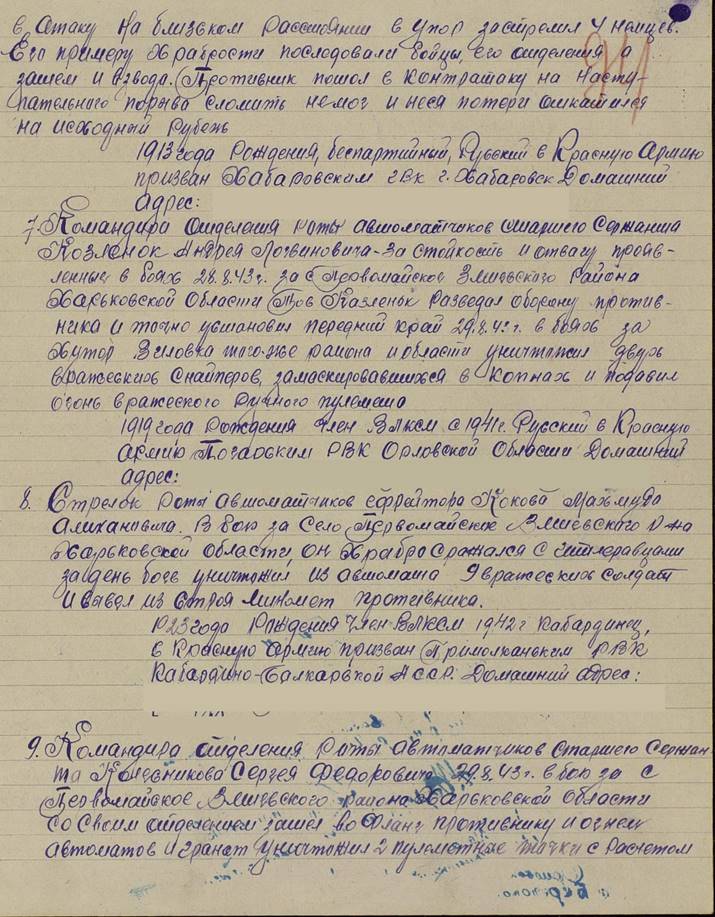 в атаку на близком расстоянии в упор застрелил 4 немцев.
Его примеру храбрости последовали бойцы, его отделения а
затем и взвода. Противник пошол в контратаку но насту-
пательного порыва сломить немог и неся потери откатился
на исходный рубеж
1913 года рождения, беспартийный, Русский в Красную Армию
призван Хабаровским ГВК г. Хабаровск Домашний
Адрес:
7. Командира отделения роты автоматчиков старшего Сержанта
Козленок Андрея Логвиновича - за стойкость и отвагу прояв-
ленные в боях 28.8.43г. за с Первомайское Змиевского района
Харьковской Области Тов Казленок разведал оборону против-
ника и точно установил передний край 29.8.43г. в боях за
Хутор Зиловка того-же района и области уничтожил двух
вражеских снайперов, замаскировавшихся в копнах и подавил
огонь вражеского ручного пулемета
1919 года рождения член ВЛКСМ с 1941г. Русский в Красную
армию Погарским РВК Орловской Области Домашний
адрес:
8. Стрелок роты автоматчиков ефрейтора Кокова Махмуда
Алихановича. В бою за Село Первомайское Змиевского р-на
Харьковской области, он храбро сражался с гитлеравцами
задень боев уничтожил из автомата 9 вражеских солдат
и вывел из строя миномет противника.
1923 года рождения член ВЛКСМ 1942г Кабардинец,
в Красную армию призван Прималканьким РВК
Кабардино-Балкарской АССР. Домашний адрес:
9. Командира отделения роты автоматчиков старшего Сержан-
та Сергея Федоровича 29.8.43г. в бою за с
Первомайское Змиевского района Харьковской области
со своим отделением зашел во фланг противнику и огнем
автоматов и гранат уничтожил 2 пулеметные точки с расчетом